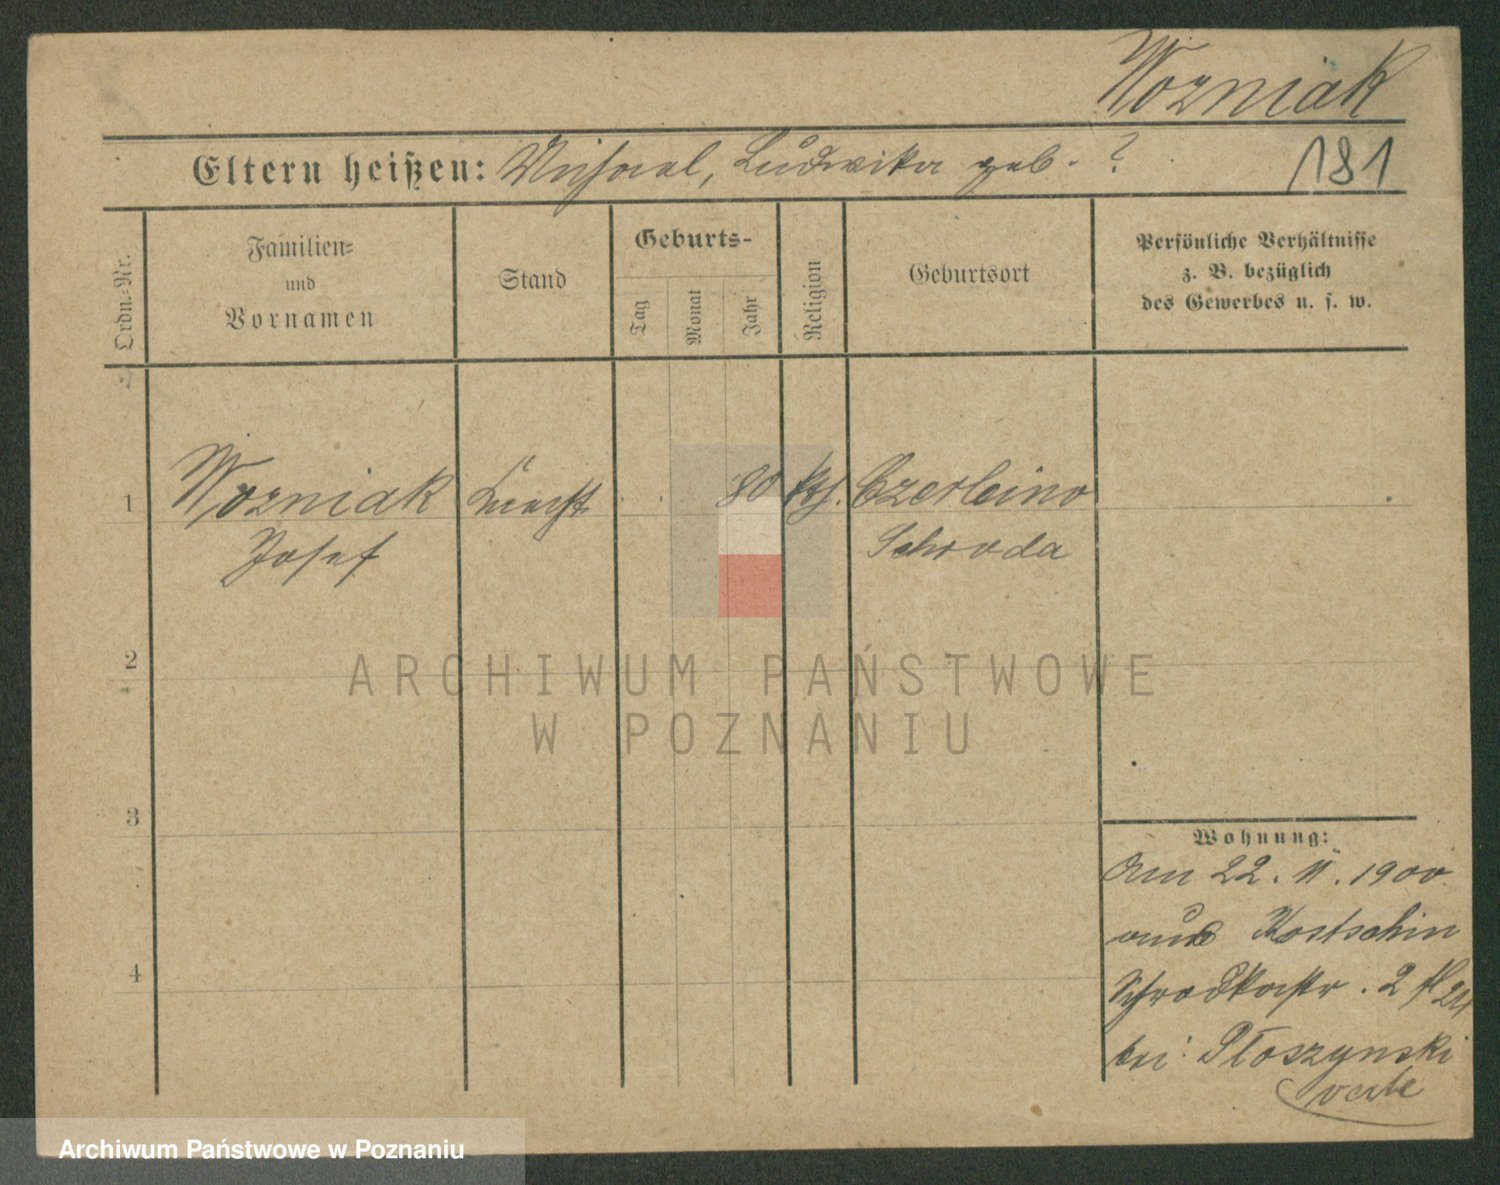 Wozniak
Eltern heißen: Michael, Ludwika geb. ?
181
Ordn.-Nr.
Familien-
und
Vornamen
Stand
Geburts-
Tag
Monat
Jahr
Religion
Geburtsort
Persönliche Verhältnisse
z. B. bezüglich
des Gewerbes u. s. w.
1
Wozniak
Josef
Knecht
80
kth.
Czerleino
Schroda
2
3
4
Wohnung:
Am 22. 11. 1900
aus Kostschin
Schrodkastr. 2
bei Płoszynski
verte
ARCHIWUM PAŃSTWOWE
W POZNANIU
Archiwum Państwowe w Poznaniu